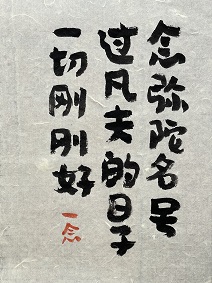 念弥陀名号
过凡夫的日子
一切刚刚好
一念